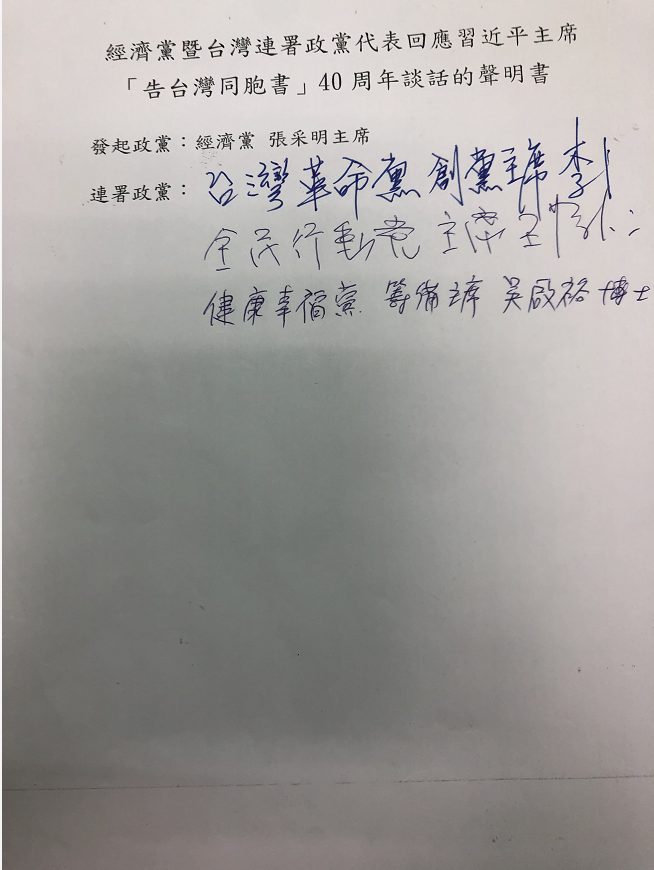 經濟黨暨台灣連署政黨代表回應習近平主席
「告台灣同胞書」40周年談話的聲明書
發起政黨：經濟黨 張采明主席
連署政黨：台灣革命黨 創黨主席 李
全民行動党 主席 王
健康幸福黨 籌備主席 吳啟裕 博士